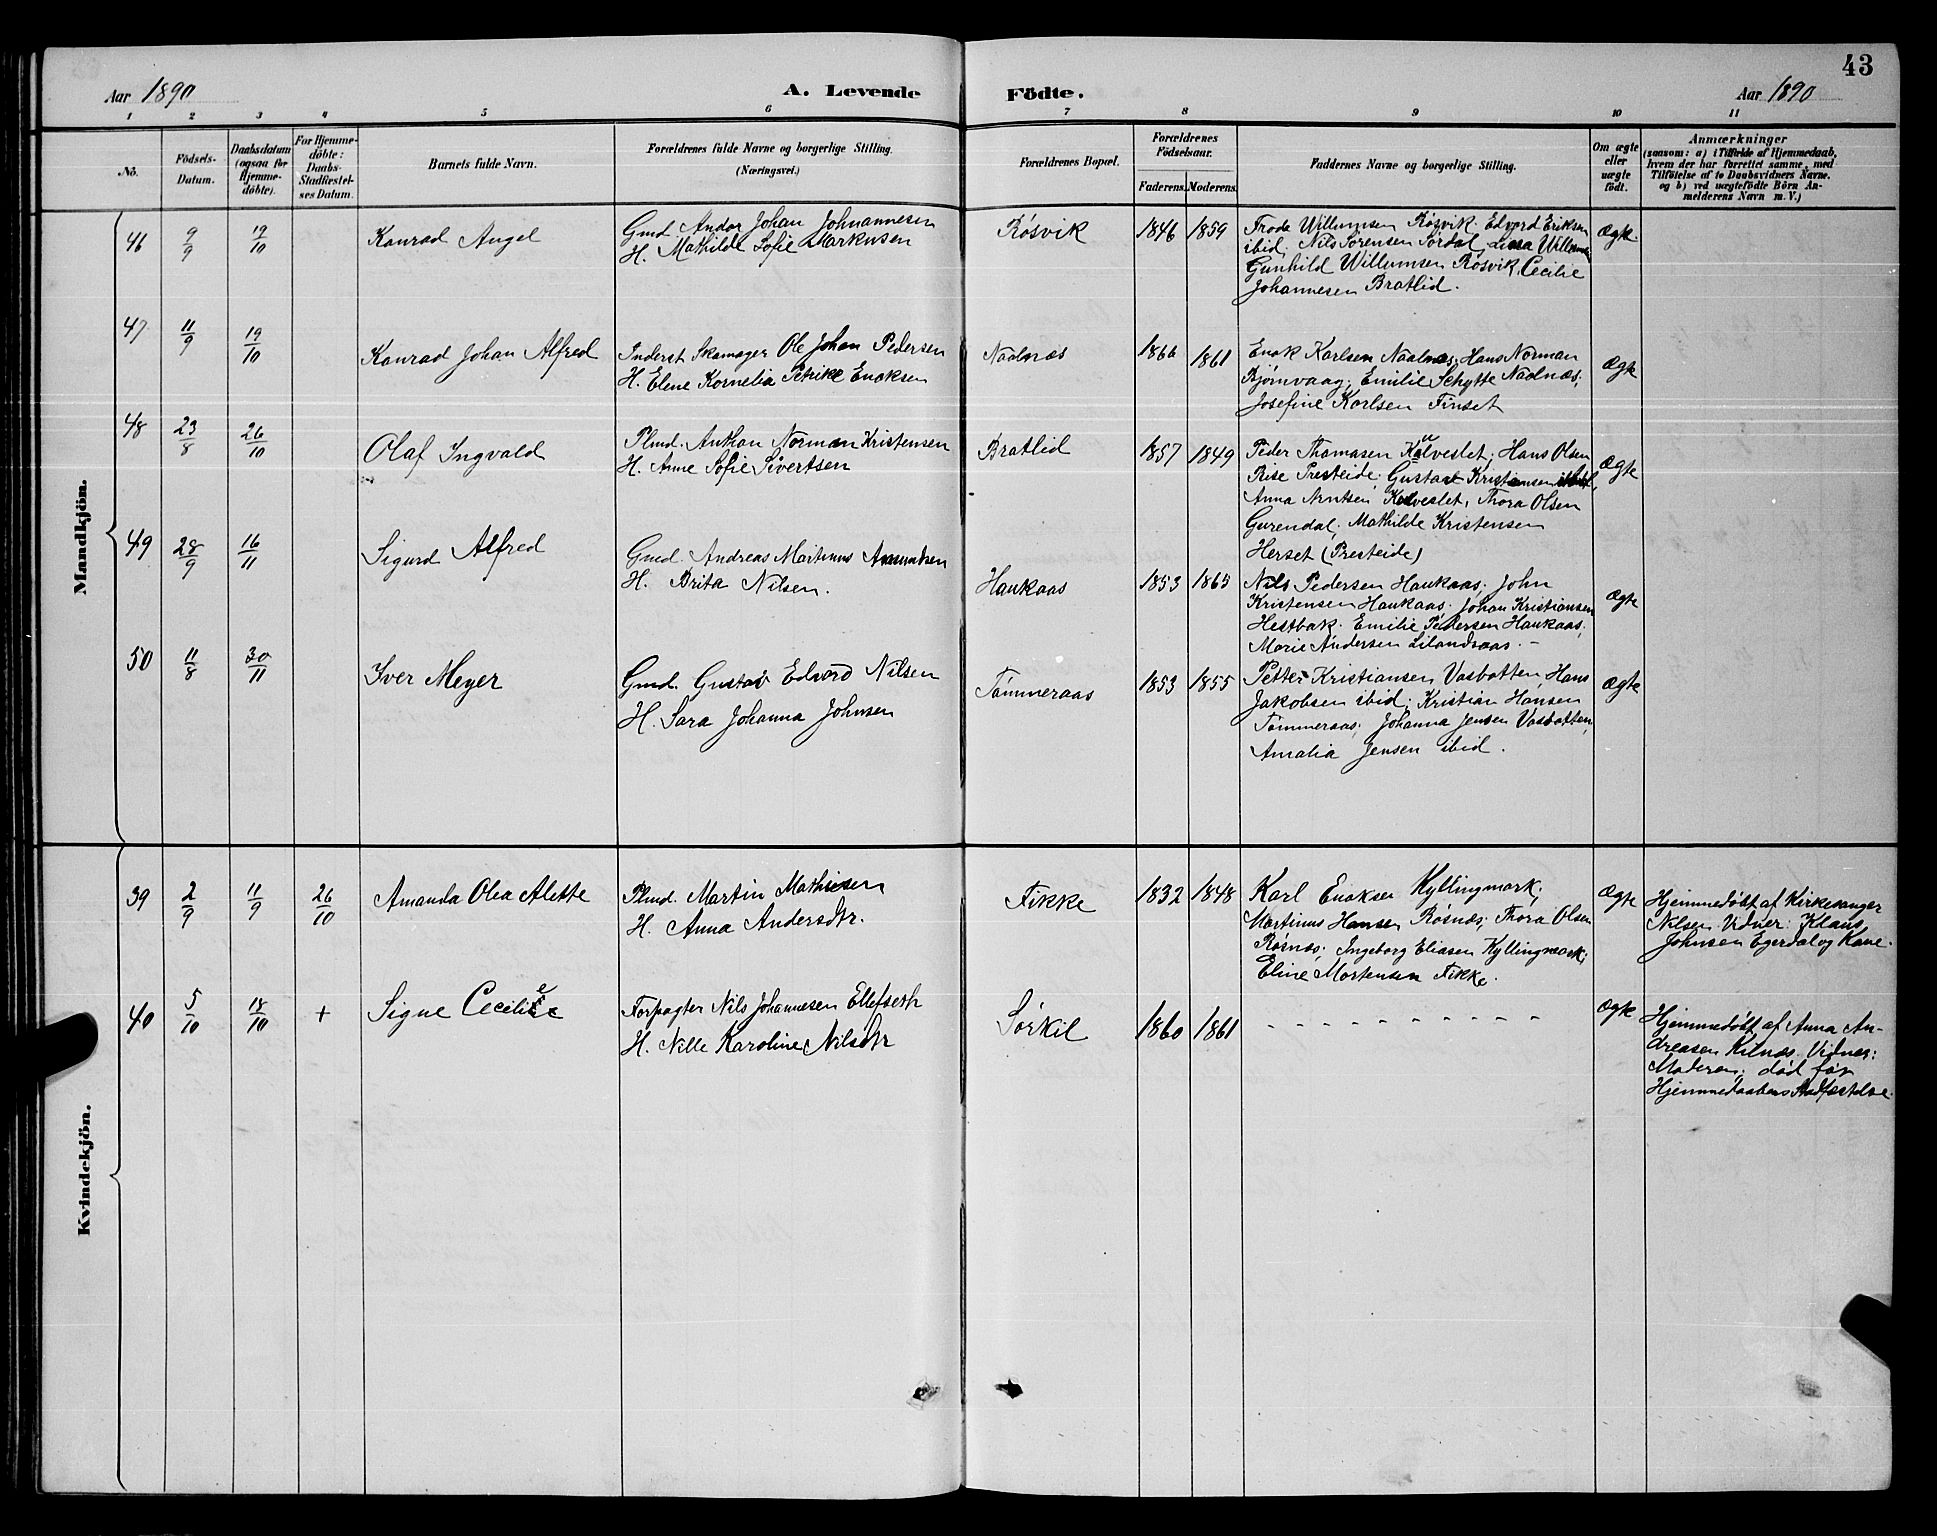 43
Aar 1890 A. Levende Födte. Aar 1890
1 2 3 4 5 6 7 8 9 10 11
No.
Födsels-
Datum.
Daabsdatum
(ogsaa for
Hjemme-
döbte).
For Hjemme-
döbte:
Daabs-
Stadfæstel-
ses Datum.
Barnets fulde Navn.
Forældrenes fulde Navne og borgerlige Stilling.
(Næringsvei.)
Forældrenes Bopæl.
Forældrenes
Födselsaar.
Faderens. Moderens.
Faddernes Navne og borgerlige Stilling.
Om ægte
eller
uægte
födt.
Anmærkninger
(saasom: a) i Tilfælde af Hjemmedaab,
hvem der har forrettet samme, med
Tilföielse af to Daabsvidners Navne,
og b) ved uægtefödte Börn An-
melderens Navn m. V.)
Mandkjön.
46 9/9 19/10 Konrad Angel
Gmd. Andor Johan Johannesen
H. Mathilde Sofie Markusen
Røsvik 1846 1859
Frode Willumsen Røsvik. Edvard Eriksen
ibid, Nils Sørensen Sørdal,
Gunhild Willumsen Røsvik, Cecilie
Johannesen Bratlid.
Ægte
47 11/9 19/10 Konrad Johan Alfred
Inderst Skomager Ole Johan Pedersen
H. Elene Kornelia Petrike Enoksen
Nadnæs 1866 1861
Enok Karlsen; Hans Norman
Bjørnvaag; Emilie Schytte Nadnæs;
Josefine Karlsen Finset
Ægte
48 23/8 26/10 Olaf Ingvald
Plmd. Anthon Norman Kristensen
H. Anne Sofie Sivertsen
Bratlid 1857 1849
Peder Thomasen Kalveslet; Hans Olsen
Rise Presteide; Gustav Kristensen ibid,
Anna Arntsen Kalveslet, Thora Olsen
Gurendal; Mathilde Kristensen
Herset (Presteide)
Ægte
49 28/9 16/11 Sigurd Alfred
Gmd. Andreas Martinus Amundsen
H. Brita Nilsen.
Haukaas 1853 1865
Nils Pedersen Haukaas; John
Kristensen Haukaas. Johan Kristiansen
Hestbak. Emilie Pedersen Haukaas;
Marie Andersen Lilandsaas.
Ægte
50 11/8 30/11 Iver Meyer
Gmd. Gustav Edvard Nilsen
H. Sara Johanna Johnsen
Tømmeraas 1853 1855
Petter Kristiansen Vasbotten, Hans
Jakobsen ibid; Kristian Hansen
Tømmeraas; Johanna Jensen Vasbotten,
Amalia Jensen ibid.
Ægte
Kvindekjön.
39 2/9 11/9 26/10 Amanda Olea Alette
Plmd. Martin Mathisen
H. Anna Andersdtr.
Fikke 1832 1848
Karl Enoksen Kyllingmark;
Martinus Hansen Røsnæs; Thora Olsen
Røsnæs; Ingeborg Eliasen Kyllingmark;
Eline Mortensen Fikke.
Ægte
Hjemmedøbt af Kirkesanger
Nilsen Vidner: Klaus
Johnsen Egerdal og Kone.
40 5/10 18/10 + Signe Cecilie
Forpagter Nils Johannesen Ellefseth
H. Nille Karoline Nilsdtr
Sørkil 1860 1861
- - - - - - - - - -
Ægte
Hjemmedøbt af Anna An-
dreasen Kilnæs. Vidner:
Moderen; død før
Hjemmedaabens Stadfæstelse.